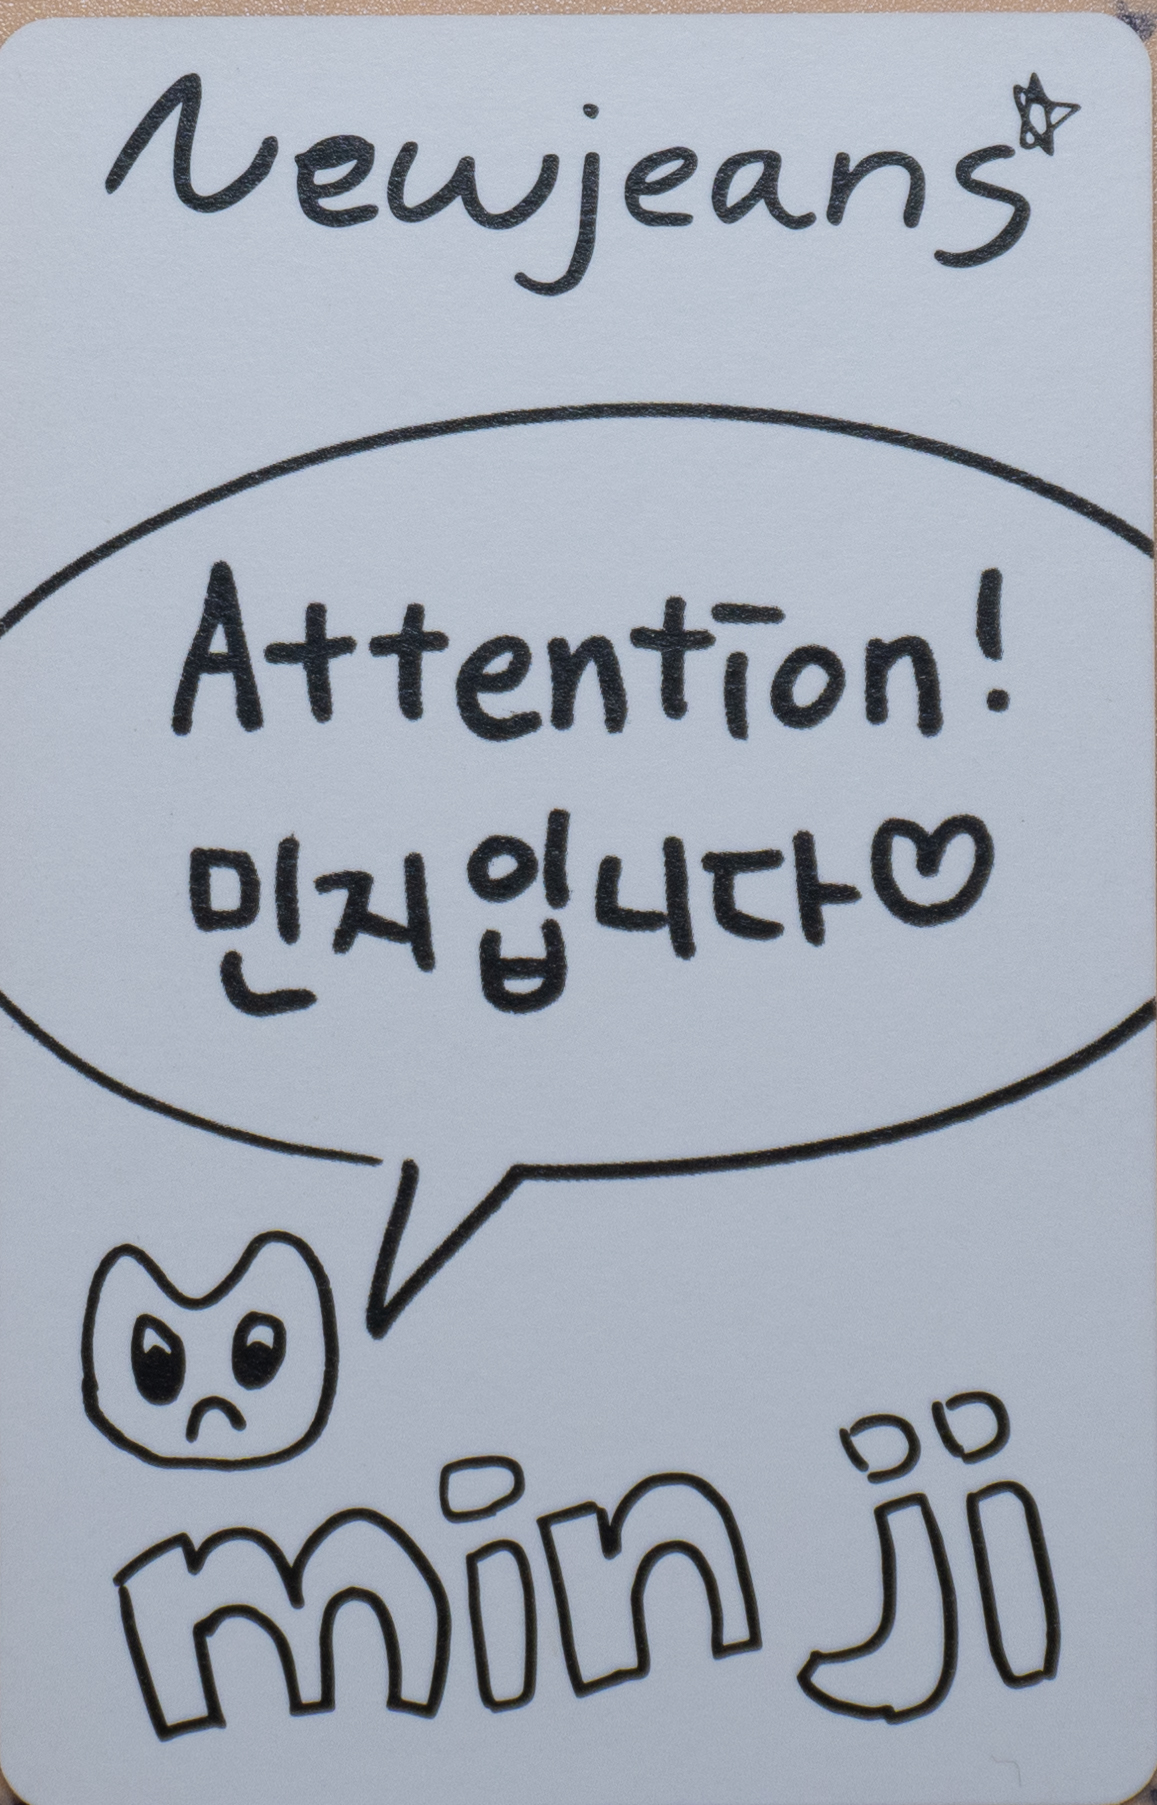 Newjeans☆
Attention!
민지입니다♡
minji